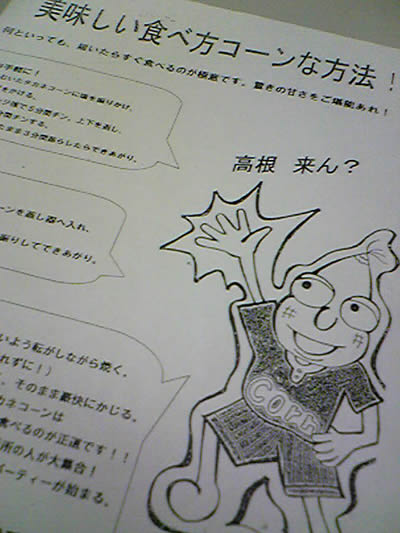 美味しい食べ方コーンな方法！
何といっても、届いたらすぐ食べるのが極意です。驚きの甘さをご堪能あれ！
手軽に！
といたタカネコーンに塩を振りかけ、
をかける。
ジ強で5分間チン。上下を返し、
分間チンする。
たまま3分間蒸らしたらできあがり。
高根　来ん？
コーンを蒸し器へ入れ、
振りしてできあがり。
いよう転がしながら焼く。
れずに！）
、そのまま豪快にかじる。
カネコーンは
食べるのが正道です！！
所の人が大集合！
パーティーが始まる。
Corn